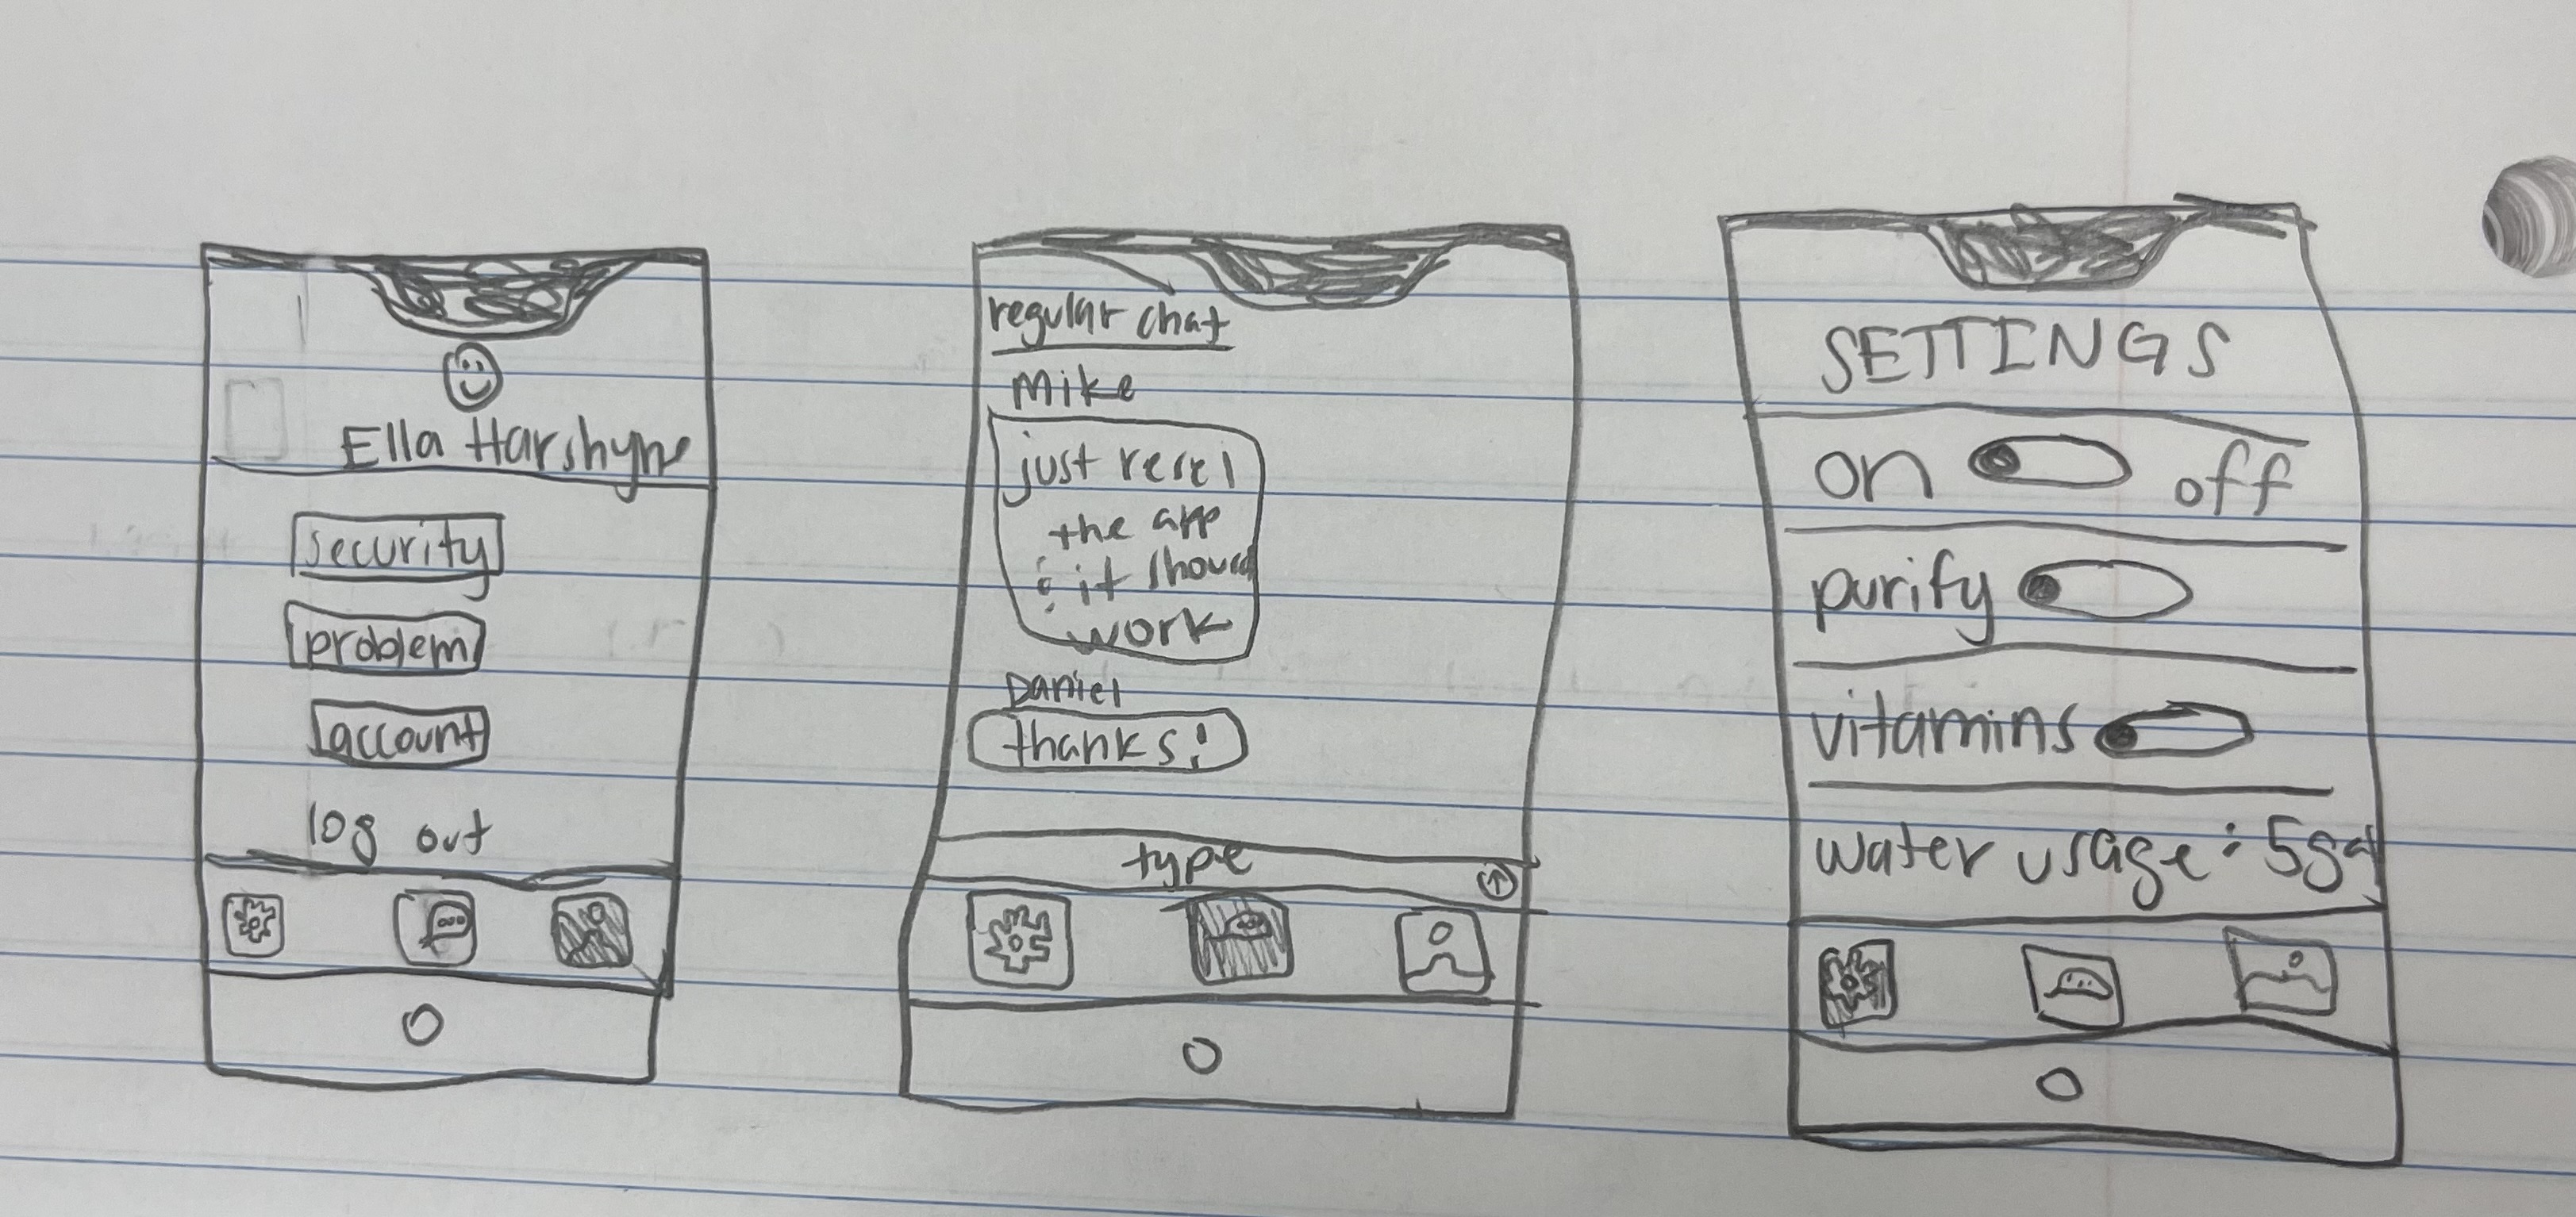 Ella Harshyne
security
problem
account
log out
regular chat
Mike
just reset
the app
& it should
work
Daniel
thanks!
type
SETTINGS
on off
purify
vitamins
water usage: 5gal